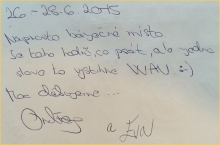 26 - 28.6.2015
Naprosto báječné místo
Se toho hodí, co psát, ale jedno
slovo to vystihne WAU :-)
Moc děkujeme...
a Eva